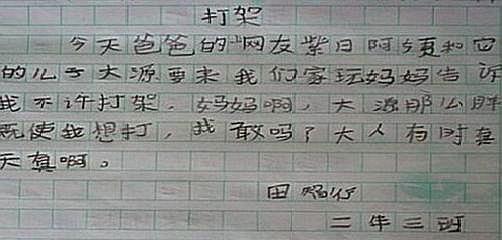 打架
今天爸爸的网友紫日阿姨和它
的儿子大源要来我们家玩妈妈告诉
我不许打架,妈妈啊,大源那么胖
既使我想打,我敢吗?大人有时真
天真啊。
田
二年三班